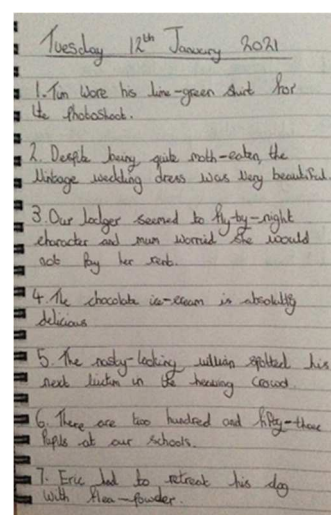 Tuesday 12th January 2021
1. Tim wore his lime-green shirt for
the photoshoot.
2. Despite being quite moth-eaten, the
vintage wedding dress was very beautiful.
3. Our lodger seemed to fly-by-night
character and mum worried she would
not pay her rent.
4. The chocolate ice-cream is absolutely
delicious
5. The nasty-looking villian spotted his
next victim in the heaving crowd.
6. There are two hundred and fifty-three
pupils at our schools.
7. Eric had to retreat his dog
with flea-powder.